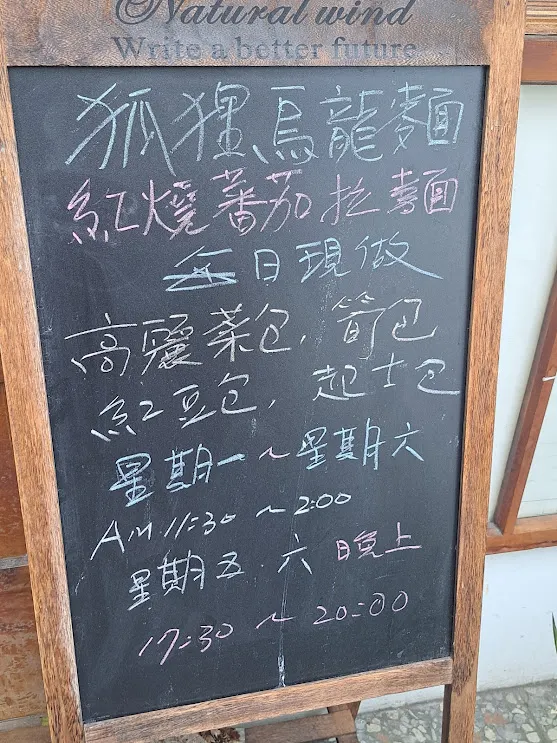 Natural wind
Write a better future
狐狸烏龍麵
紅燒蕃茄拉麵
每日現做
高麗菜包, 筍包
紅豆包, 起士包
星期一~星期六
AM 11:30 ~ 2:00
星期五.六 晚上
17:30 ~ 20:00